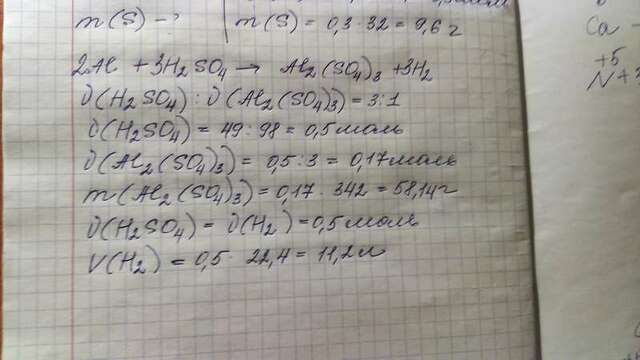 m(S) - ?
m(S) = 0,3 · 32 = 9,6 г
2Al + 3H₂SO₄ → Al₂(SO₄)₃ + 3H₂
ν(H₂SO₄) : ν(Al₂(SO₄)₃) = 3:1
ν(H₂SO₄) = 49 : 98 = 0,5 моль
ν(Al₂(SO₄)₃) = 0,5 : 3 = 0,17 моль
m(Al₂(SO₄)₃) = 0,17 · 342 = 58,14 г
ν(H₂SO₄) = ν(H₂) = 0,5 моль
V(H₂) = 0,5 · 22,4 = 11,2 л
Ca
+5
N